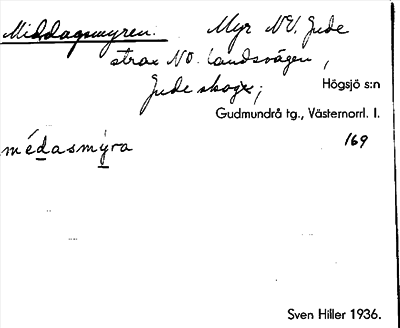 Middagsmyren. Myr NV. Jude
strax NO. landsvägen,
Jude skog; Högsjö s:n
Gudmundrå tg., Västernorrl. l.
médasmýra 169
Sven Hiller 1936.